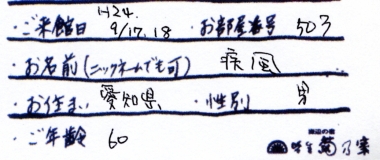 ・ご来館日 H24. 9/17.18 ・お部屋番号 503
・お名前(ニックネームでも可) 疾風
・お住まい 愛知県 ・性別 男
・ご年齢 60
海辺の宿
菊乃家